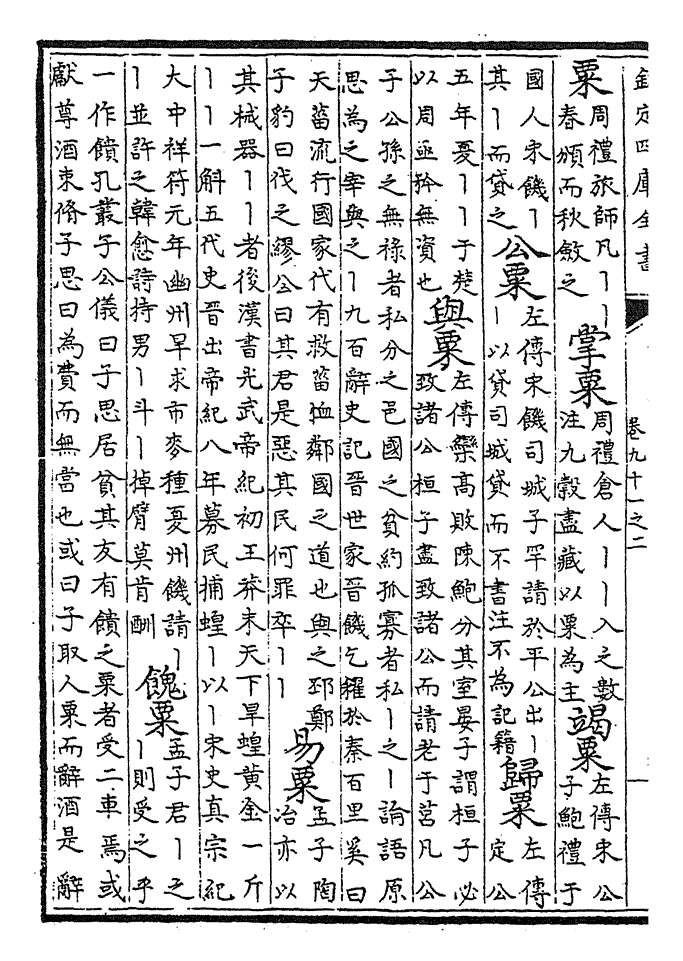 欽定四庫全書
卷九十一之二
粟周禮旅師凡丨丨春頒而秋斂之掌粟周禮倉人丨丨入之數注九穀盡藏以粟為主竭粟左傳宋公子鮑禮于
國人宋饑丨其丨而貸之公粟左傳宋饑司城子罕請於平公出丨丨以貸司城貸而不書注不為記籍歸粟左傳定公
五年夏丨丨于楚以周亟矜無資也與粟左傳欒高敗陳鮑分其室晏子謂桓子必致諸公桓子盡致諸公而請老于莒凡公
子公孫之無祿者私分之邑國之貧約孤寡者私丨之丨論語原思為之宰與之丨九百辭史記晉世家晉饑乞糴於秦百里奚曰
天菑流行國家代有救菑恤鄰國之道也與之邳鄭子豹曰伐之繆公曰其君是惡其民何罪卒丨丨易粟孟子陶冶亦以
其械器丨丨者後漢書光武帝紀初王莽末天下旱蝗黃金一斤丨丨一斛五代史晉出帝紀八年募民捕蝗丨以丨宋史真宗紀
大中祥符元年幽州旱求市麥種夏州饑請丨丨並許之韓愈詩持男丨斗丨掉臂莫肯酬餽粟孟子君丨之丨則受之乎
一作饋孔叢子公儀曰子思居貧其友有饋之粟者受二車焉或獻尊酒束脩子思曰為費而無當也或曰子取人粟而辭酒是辭